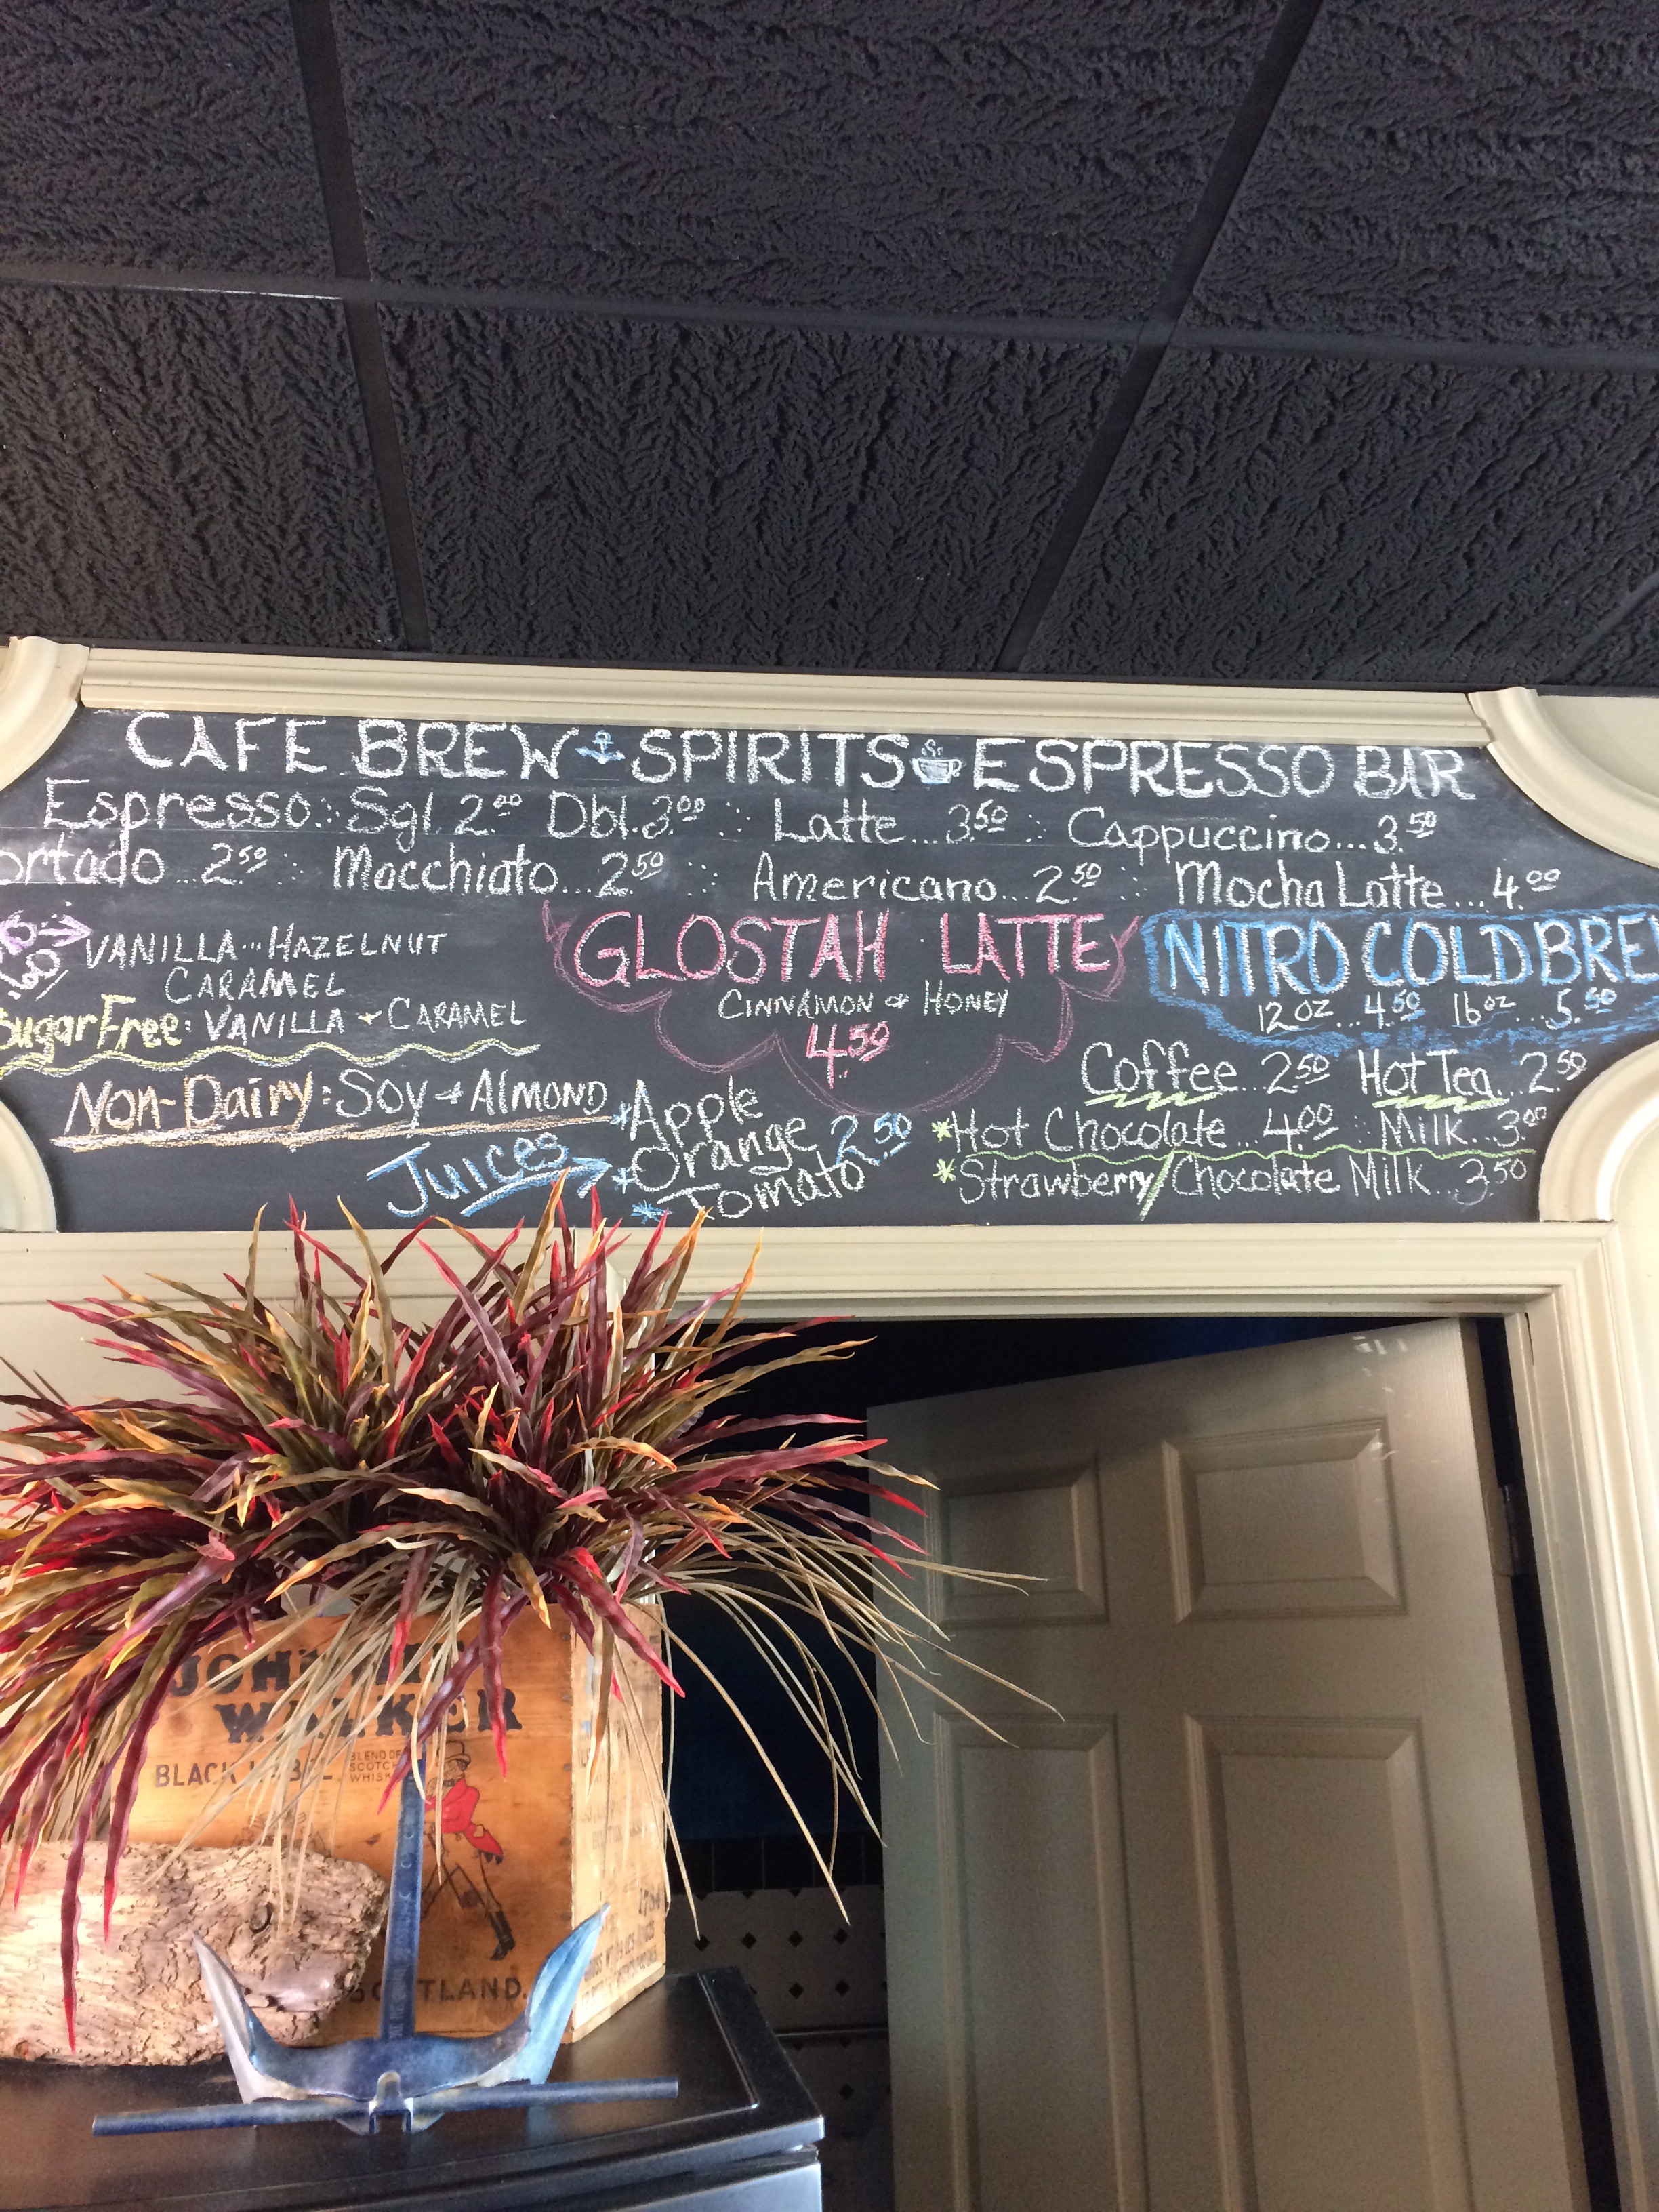 CAFE BREW SPIRITS ESPRESSO BAR
Espresso: Sgl. 2.00 Dbl. 3.00 Latte... 3.50 Cappuccino... 3.50
ortado... 2.50 Macchiato... 2.50 Americano... 2.50 Mocha Latte... 4.00
VANILLA... HAZELNUT
CARAMEL
Sugar Free: VANILLA + CARAMEL
Non-Dairy: Soy + ALMOND
GLOSTAH LATTE
CINNAMON & HONEY
4.50
NITRO COLD BRE
12 oz... 4.50 16 oz... 5.50
Juices
*Apple
*Orange 2.50
*Tomato
Coffee... 2.50 Hot Tea... 2.50
*Hot Chocolate... 4.00 Milk... 3.00
*Strawberry/Chocolate Milk... 3.50
WALKER
BLACK LABEL
BLEND OF
SCOTCH
WHISK
SCOTLAND.